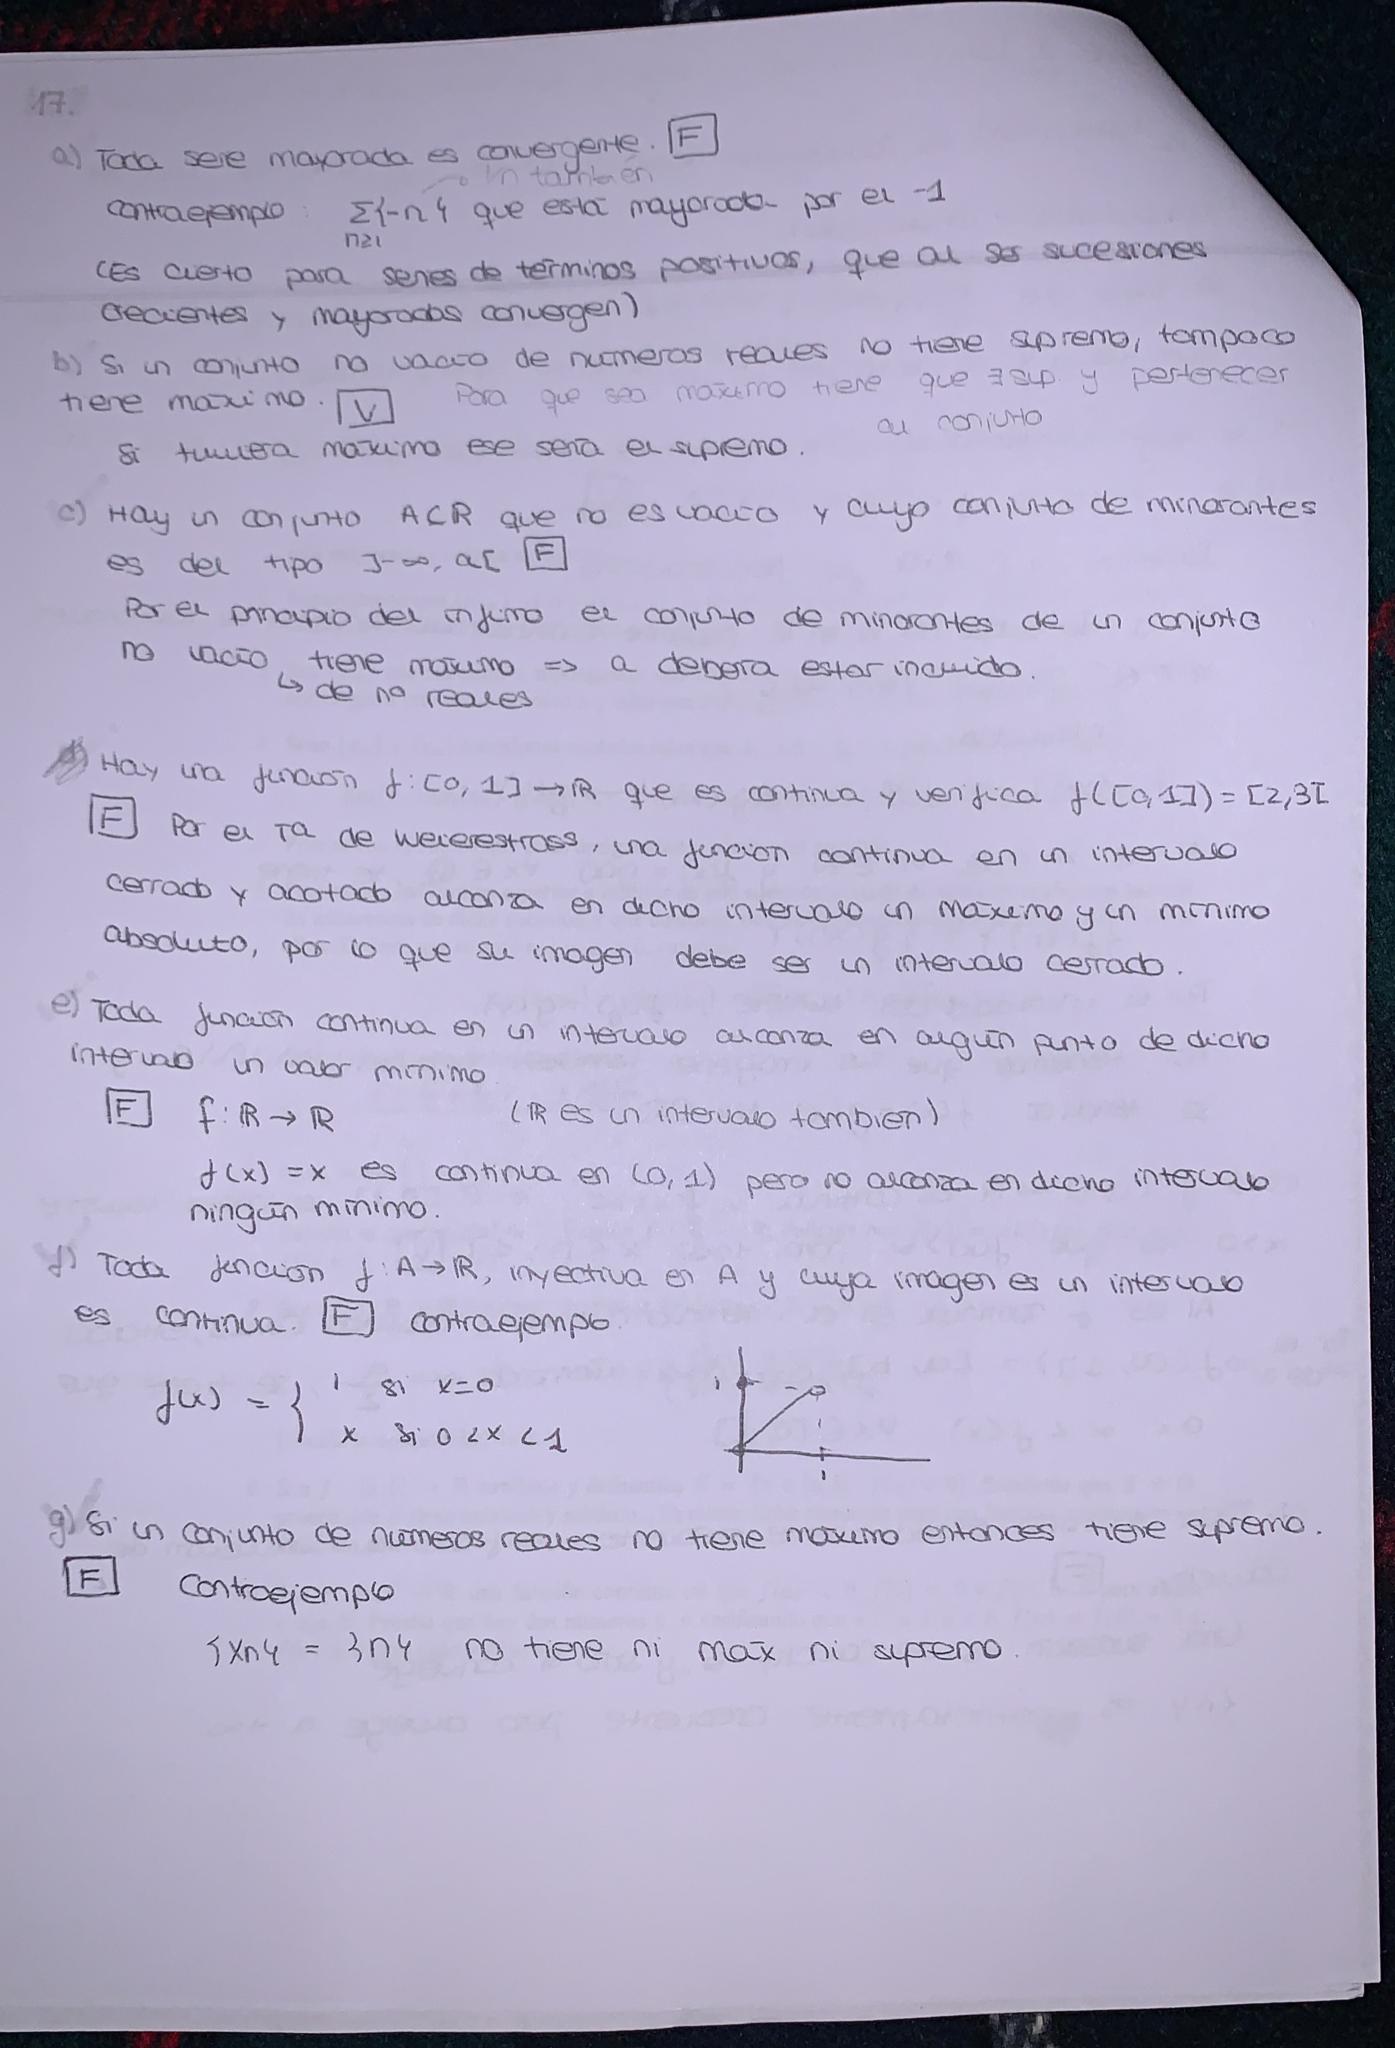 17.
a) Toda serie mayorada es convergente. F
→ in también
contraejemplo: Σ{-n} que está mayorada por el -1
n≥1
(Es cierto para series de términos positivos, que al ser sucesiones
crecientes y mayoradas convergen)
b) Si un conjunto no vacío de números reales no tiene supremo, tampoco
tiene máximo. V Para que sea máximo tiene que ∃ sup. y pertenecer
al conjunto
Si tuviera máximo ese sería el supremo.
c) Hay un conjunto A⊂R que no es vacío y cuyo conjunto de minorantes
es del tipo ]-∞, a[ F
Por el principio del ínfimo el conjunto de minorantes de un conjunto
no vacío tiene máximo => a debería estar incluido.
↳ de nº reales
d) Hay una función f: [0, 1] → ℝ que es continua y verifica f([0,1]) = [2,3[
F Por el Tª de Weierestrass, una función continua en un intervalo
cerrado y acotado alcanza en dicho intervalo un máximo y un mínimo
absoluto, por lo que su imagen debe ser un intervalo cerrado.
e) Toda función continua en un intervalo alcanza en algún punto de dicho
intervalo un valor mínimo
F f: ℝ → ℝ (ℝ es un intervalo tambien)
f(x) = x es continua en (0, 1) pero no alcanza en dicho intervalo
ningún mínimo.
f) Toda función f: A→ℝ, inyectiva en A y cuya imagen es un intervalo
es continua. F contraejemplo.
f(x) = { 1 si x=0
x si 0 < x < 1
1
1
g) Si un conjunto de números reales no tiene máximo entonces tiene supremo.
F Contraejemplo
{xn} = {n} no tiene ni máx ni supremo.